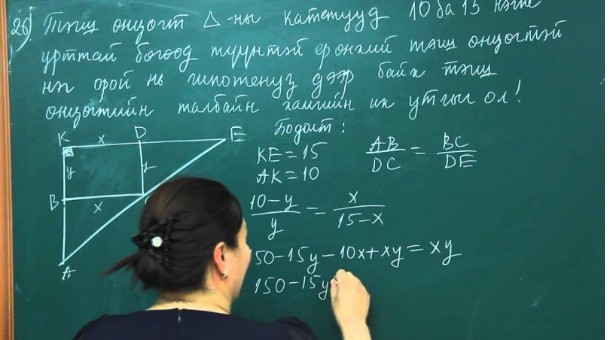 26) Тэгш өнцөгт △-ны катетууд 10 ба 15 нэгж
урттай бөгөөд түүнтэй ерөнхий тэгш өнцөгтэй
нэг орой нь гипотенуз дээр байх тэгш
өнцөгтийн талбайн хамгийн их утгыг ол!
Бодолт:
K x D E
y y
B x
A
KE = 15
AK = 10
AB/DC = BC/DE
10-y/y = x/15-x
150-15y-10x+xy=xy
150-15y